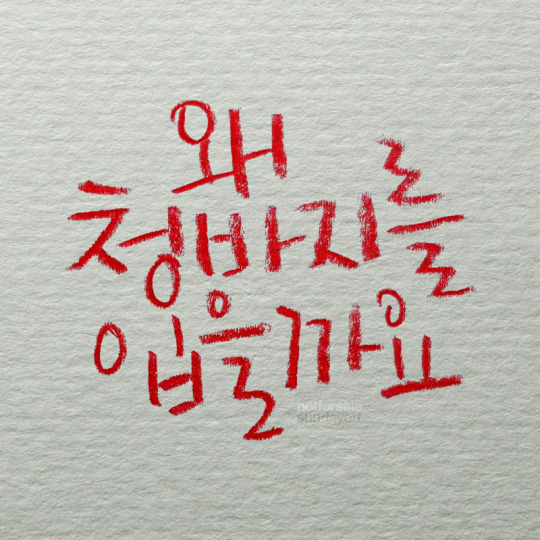 왜
청바지를
입을까요
notforsale
sundayoff